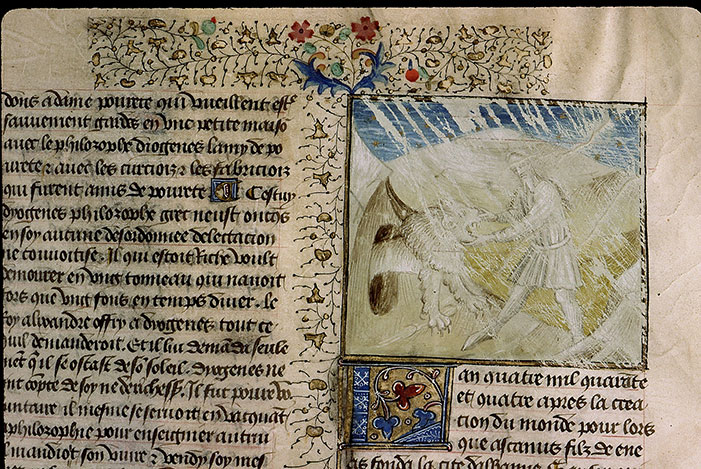 dons a dame pourete qui vueillent est͛
sauuement gardes en vne petite maiso
auec le philozophe diogenes lamy de po
urete ⁊ auec les curcioiz ⁊ les fabricioiz
qui furent amis de pourete Cestuy
dyogenes philozophe grec neust oncqs
en soy aucune desordonnee delectacion
ne conuoitise. Il qui estoit riche voult
demourer en vng tonneau qui nauoit
fors que vng fons en temps diuer. Le
roy alixandre offry a diogenes tout ce
quil demanderoit. Et il lui demāda seule
quil se ostast de sō soleil. dyogenes ne
copte de soy ne de richesse. Il fut poure vo
luntaire il mesme se seruoit en vacquāt
a philozophie pour enseigner autrui
Il mandiot son viure ⁊ vendy soy mes
an quatre mil quarāte
et quatre apres la crea
tion du monde pour lors
que ascanus filz de ene
as fonda la cite